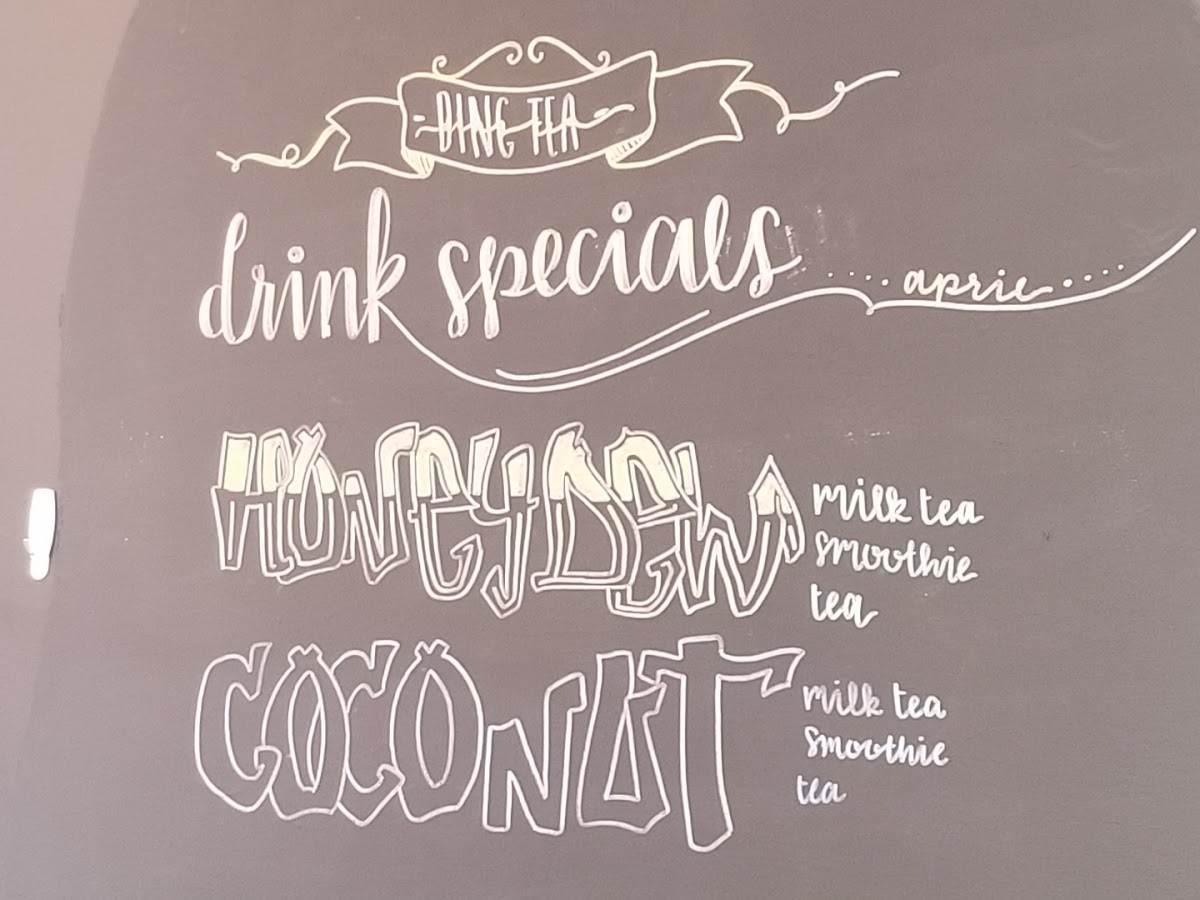 DING TEA
drink specials
....april....
HONEYDEW
milk tea
smoothie
tea
COCONUT
milk tea
smoothie
tea